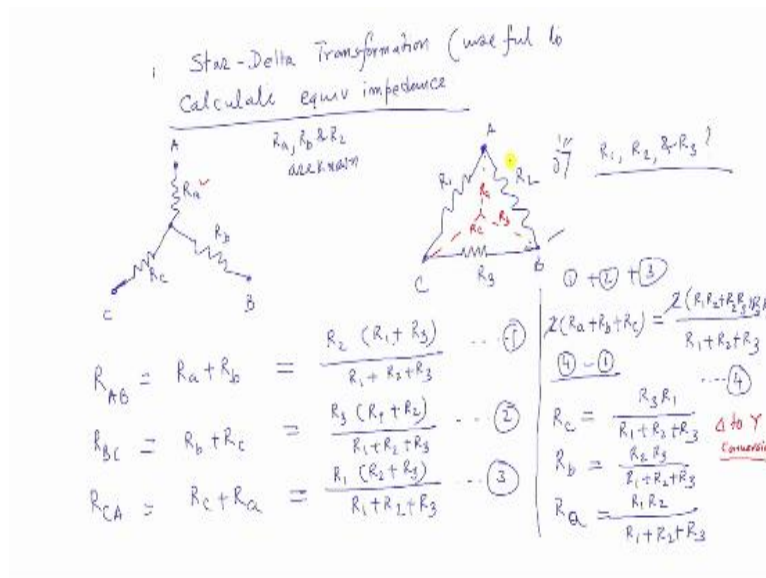 Star-Delta Transformation (useful to
Calculate equiv impedance
Ra, Rb & Rc
are known
A
Ra
Rb
Rc
C
B
A
R1
R2
Ra
Rc
R3
C
B
R1, R2, & R3 ?
RAB = Ra + Rb = R2 (R1 + R3) / R1 + R2 + R3 --- ①
RBC = Rb + Rc = R3 (R1 + R2) / R1 + R2 + R3 --- ②
RCA = Rc + Ra = R1 (R2 + R3) / R1 + R2 + R3 --- ③
① + ② + ③
2(Ra + Rb + Rc) = 2(R1R2 + R2R3 + / R1 + R2 + R3
---- ④
④ - ①
Rc = R3 R1 / R1 + R2 + R3
Δ to Y
Conversion
Rb = R2 R3 / R1 + R2 + R3
Ra = R1 R2 / R1 + R2 + R3